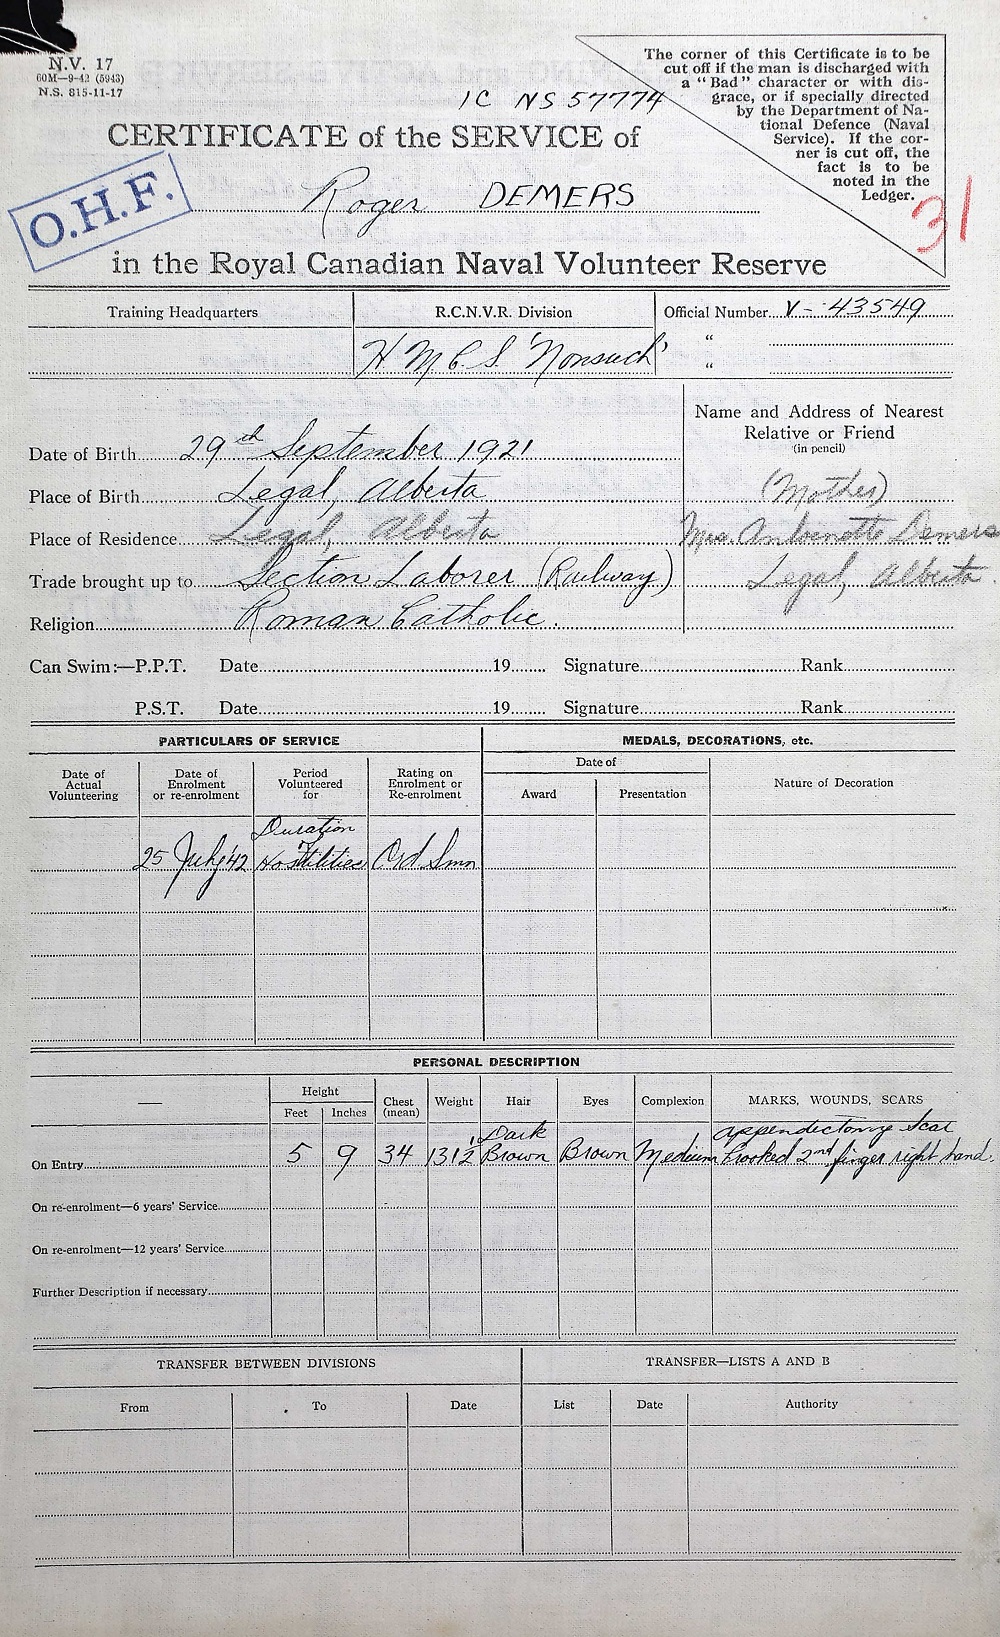 N.V. 17
60M—9-42 (5943)
N.S. 815-11-17
The corner of this Certificate is to be
cut off if the man is discharged with
a "Bad" character or with dis-
grace, or if specially directed
by the Department of Na-
tional Defence (Naval
Service). If the cor-
ner is cut off, the
fact is to be
noted in the
Ledger.
1C NS 57774
CERTIFICATE of the SERVICE of
O.H.F.
Roger DEMERS
31
in the Royal Canadian Naval Volunteer Reserve
Training Headquarters R.C.N.V.R. Division Official Number V - 43549
H.M.C.S. 'Nonsuch' "
"
Name and Address of Nearest
Relative or Friend
(in pencil)
Date of Birth 29th September 1921
Place of Birth Legal, Alberta (Mother)
Place of Residence Legal, Alberta Mrs. Antoinette Demers
Trade brought up to Section Laborer (Railway) Legal, Alberta.
Religion Roman Catholic.
Can Swim:—P.P.T. Date 19 Signature Rank
P.S.T. Date 19 Signature Rank
PARTICULARS OF SERVICE MEDALS, DECORATIONS, etc.
Date of Actual Volunteering Date of Enrolment or re-enrolment Period Volunteered for Rating on Enrolment or Re-enrolment Date of Nature of Decoration
Award Presentation
Duration
25 July '42 Hostilities Ord Smn
PERSONAL DESCRIPTION
Height Chest (mean) Weight Hair Eyes Complexion MARKS, WOUNDS, SCARS
Feet Inches
Dark appendectomy scar
On Entry 5 9 34 131½ Brown Brown Medium Crooked 2nd finger right hand.
On re-enrolment—6 years' Service
On re-enrolment—12 years' Service
Further Description if necessary
TRANSFER BETWEEN DIVISIONS TRANSFER—LISTS A AND B
From To Date List Date Authority